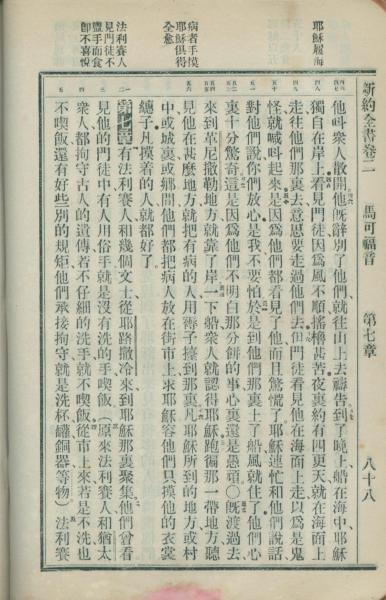 新約全書卷二 馬可福音 第七章 八十八
耶穌履海
病者手摸
耶穌俱得
全愈
法利賽人
見門徒不
盥手而食
卽不喜悅
他呌衆人散開他旣辭別了他們就往山上去禱告到了晚上船在海中耶穌
獨自在岸上看見門徒因爲風不順搖櫓甚苦夜裏約有四更天就在海面上
走往他們那裏去意思要走過他們去但門徒看見他在海面上走以爲是鬼
怪就喊呌起來是因爲他們都看見了他而且驚慌了耶穌連忙和他們說話
對他們說你們放心是我不要怕於是到他們那裏上了船風就住了他們心
裏十分驚奇這是因爲他們不明白那分餠的事心裏還是愚頑〇旣渡過去
來到革尼撒勒地方就靠了岸一下船衆人就認得耶穌跑徧那一帶地方聽
見他在甚麼地方就把有病的人用褥子擡到那裏凡耶穌所到的地方或村
中或城裏或鄉間他們都把病人放在街市上求耶穌容他們只摸他的衣裳
繸子凡摸着的人就都好了
第七章有法利賽人和幾個文士從耶路撒冷來到耶穌那裏聚集他們曾看
見他的門徒中有人用俗手就是沒有洗的手喫飯（原來法利賽人和猶太
衆人都拘守古人的遺傳若不仔細的洗手就不喫飯從市上來若是不洗也
不喫飯還有好些別的規矩他們承接拘守就是洗杯罐銅器等物）法利賽